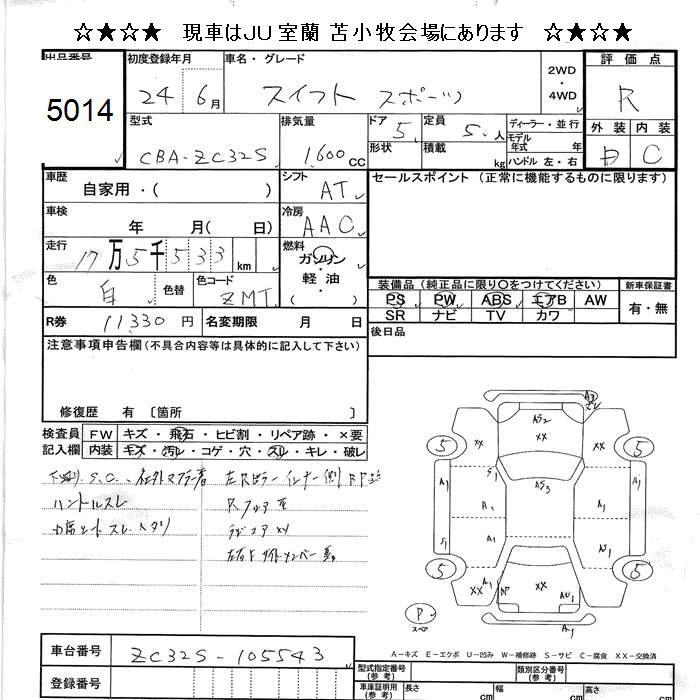 ☆★☆★ 現車はJU室蘭 苫小牧会場にあります ☆★☆★
出品番号 5014
初度登録年月 24 6月
車名・グレード スイフト スポーツ
2WD・4WD
評価点 R
外装 内装 C
型式 CBA-ZC32S
排気量 1,600cc
ドア 5
形状
定員 5.人
積載 kg
ディーラー・並行
モデル年式 年
ハンドル 左・右
車歴 自家用・( )
シフト AT
セールスポイント (正常に機能するものに限ります)
車検 年 月( 日)
冷房 AAC
走行 17万5千533km
燃料 ガソリン・軽油 ( )
色 白
色替
色コード ZMT
装備品(純正品に限り○をつけてください)
PS PW ABS エアB AW
SR ナビ TV カワ
新車保証書 有・無
R券 11,330円
名変期限 月 日
後日品
注意事項申告欄(不具合内容等は具体的に記入して下さい)
修復歴 有〔箇所 〕
検査員 FW キズ・飛石・ヒビ割・リペア跡・×要
記入欄 内装 キズ・汚レ・コゲ・穴・スレ・キレ・破レ
下廻り S.C. 社外マフラー
ハンドルスレ
左右F
A3
AS2
XX
XX
XX
5
5
S1
AS3
A1
A1
S1
A1
5
5
XX
A1
XX
A1
P
スペア
A1
A-キズ E-エクボ U-凹み W-補修跡 S-サビ C-腐食 XX-交換済
車台番号 ZC32S-105543
登録番号
型式指定番号(参考)
類別区分番号(参考)
車庫証明用(参考) 長さ cm 幅 cm 高さ cm